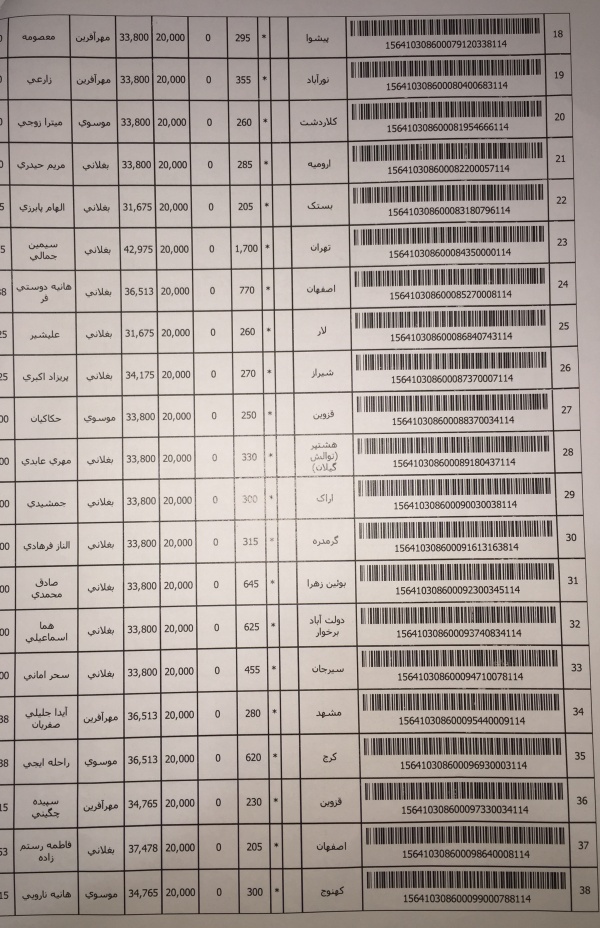 18 156410308600079120338114 پیشوا * 295 0 20,000 33,800 مهرآفرین معصومه
19 156410308600080400683114 نورآباد * 355 0 20,000 33,800 مهرآفرین زارعي
20 156410308600081954666114 کلاردشت * 260 0 20,000 33,800 موسوي میترا زوجي
21 156410308600082200057114 ارومیه * 285 0 20,000 33,800 بغلاني مریم حیدري
22 156410308600083180796114 بستک * 205 0 20,000 31,675 بغلاني الهام پابرزي
23 156410308600084350000114 تهران * 1,700 0 20,000 42,975 بغلاني سیمین
جمالي
24 156410308600085270008114 اصفهان * 770 0 20,000 36,513 بغلاني هانیه دوستي
فر
25 156410308600086840743114 لار * 260 0 20,000 31,675 بغلاني علیشیر
26 156410308600087370007114 شیراز * 270 0 20,000 34,175 بغلاني پریزاد اکبري
27 156410308600088370034114 قزوین * 250 0 20,000 33,800 موسوي حکاکیان
28 156410308600089180437114 هشتپر
(توالش
گیلان) * 330 0 20,000 33,800 بغلاني مهري عابدي
29 156410308600090030038114 اراک * 300 0 20,000 33,800 بغلاني جمشیدي
30 156410308600091613163814 گرمدره * 315 0 20,000 33,800 بغلاني الناز فرهادي
31 156410308600092300345114 بوئین زهرا * 645 0 20,000 33,800 بغلاني صادق
محمدي
32 156410308600093740834114 دولت آباد
برخوار * 625 0 20,000 33,800 بغلاني هما
اسماعیلي
33 156410308600094710078114 سیرجان * 455 0 20,000 33,800 بغلاني سحر اماني
34 156410308600095440009114 مشهد * 280 0 20,000 36,513 مهرآفرین آیدا جلیلي
صفریان
35 156410308600096930003114 کرج * 620 0 20,000 36,513 موسوي راحله ایجي
36 156410308600097330034114 قزوین * 230 0 20,000 34,765 مهرآفرین سپیده
چگیني
37 156410308600098640008114 اصفهان * 205 0 20,000 37,478 بغلاني فاطمه رستم
زاده
38 156410308600099000788114 کهنوج * 300 0 20,000 34,765 موسوي هانیه نارویي